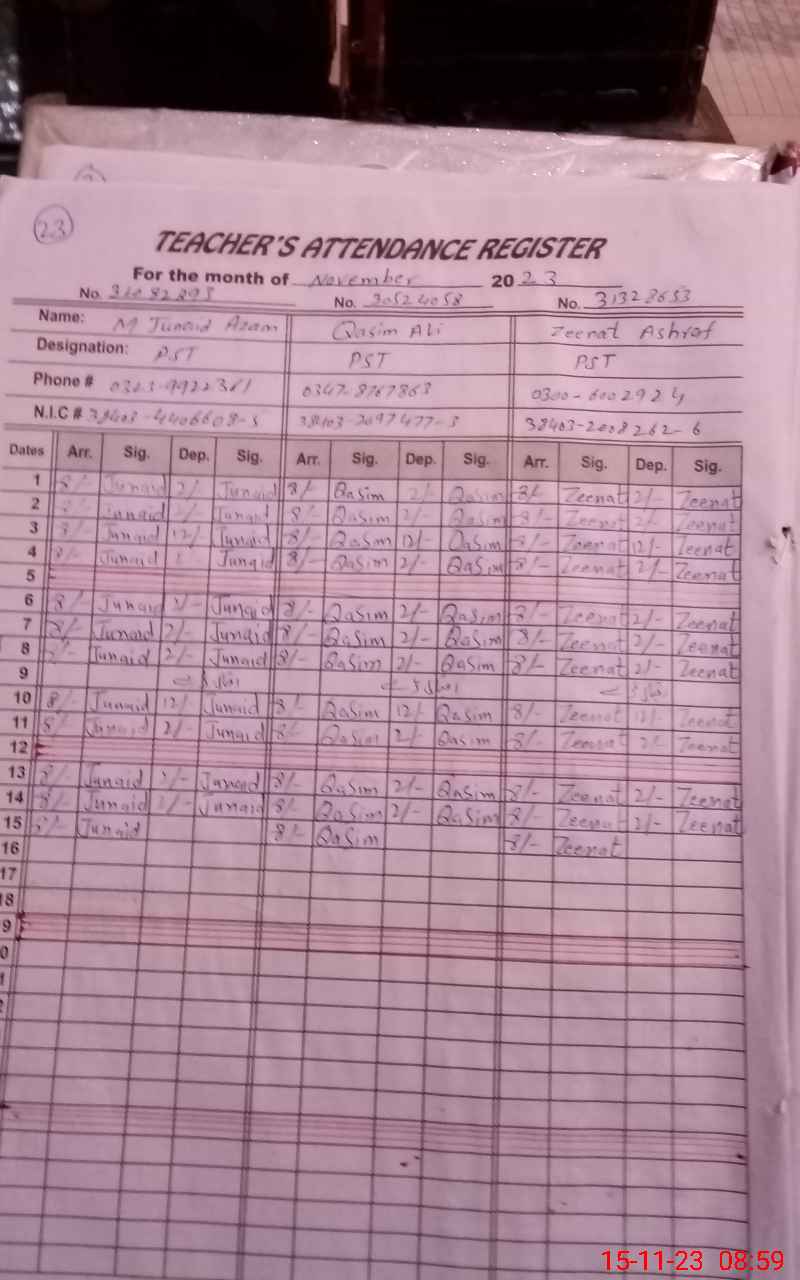 23
TEACHER'S ATTENDANCE REGISTER
For the month of November 2023
No. No. 30524058 No. 31328653
Name: M Junaid Azam Qasim Ali Zeenat Ashraf
Designation: PST PST PST
Phone # 0347-8767863 0300-6002924
N.I.C # 38403-4406608-5 38403-2097477-3 38403-2008262-6
Dates Arr. Sig. Dep. Sig. Arr. Sig. Dep. Sig. Arr. Sig. Dep. Sig.
1 8/- Junaid 2/- Junaid 8/- Qasim 2/- Qasim 8/- Zeenat 2/- Zeenat
2 8/- Junaid Junaid 8/- Qasim 2/- Qasim 8/- Zeenat 2/- Zeenat
3 8/- Junaid 12/- Junaid 8/- Qasim 12/- Qasim 8/- Zeenat 12/- Zeenat
4 8/- Junaid Junaid 8/- Qasim 2/- Qasim 8/- Zeenat 2/- Zeenat
5
6 8/- Junaid 2/- Junaid 8/- Qasim 2/- Qasim 8/- Zeenat 2/- Zeenat
7 8/- Junaid 2/- Junaid 8/- Qasim 2/- Qasim 8/- Zeenat 2/- Zeenat
8 8/- Junaid 2/- Junaid 8/- Qasim 2/- Qasim 8/- Zeenat 2/- Zeenat
9
10 8/- Junaid 12/- Junaid 8/- Qasim 12/- Qasim 8/- Zeenat 12/- Zeenat
11 8/- Junaid 2/- Junaid 8/- Qasim 2/- Qasim 8/- Zeenat 2/- Zeenat
12
13 8/- Junaid 2/- Junaid 8/- Qasim 2/- Qasim 8/- Zeenat 2/- Zeenat
14 8/- Junaid 2/- Junaid 8/- Qasim 2/- Qasim 8/- Zeenat 2/- Zeenat
15 8/- Junaid 8/- Qasim 8/- Zeenat
16
17
18
9
0
15-11-23 08:59